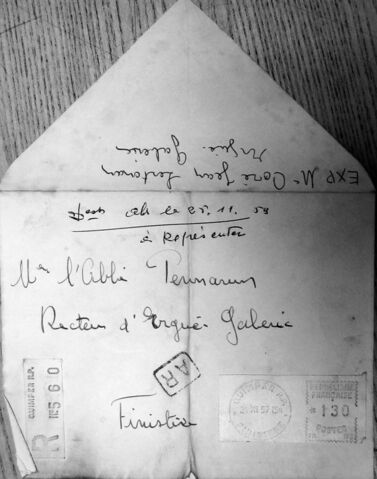 EXP Mr Coré Jean Lestonan
Ergué-Gabéric
abs le 25.11.59
à Représenter
Mr l'Abbé Pennarun
Recteur d'Ergué-Gabéric
AR
Finistère
QUIMPER R.P.
R No 560
QUIMPER R.P.
FINISTERE
REPUBLIQUE
FRANÇAISE
130
POSTES